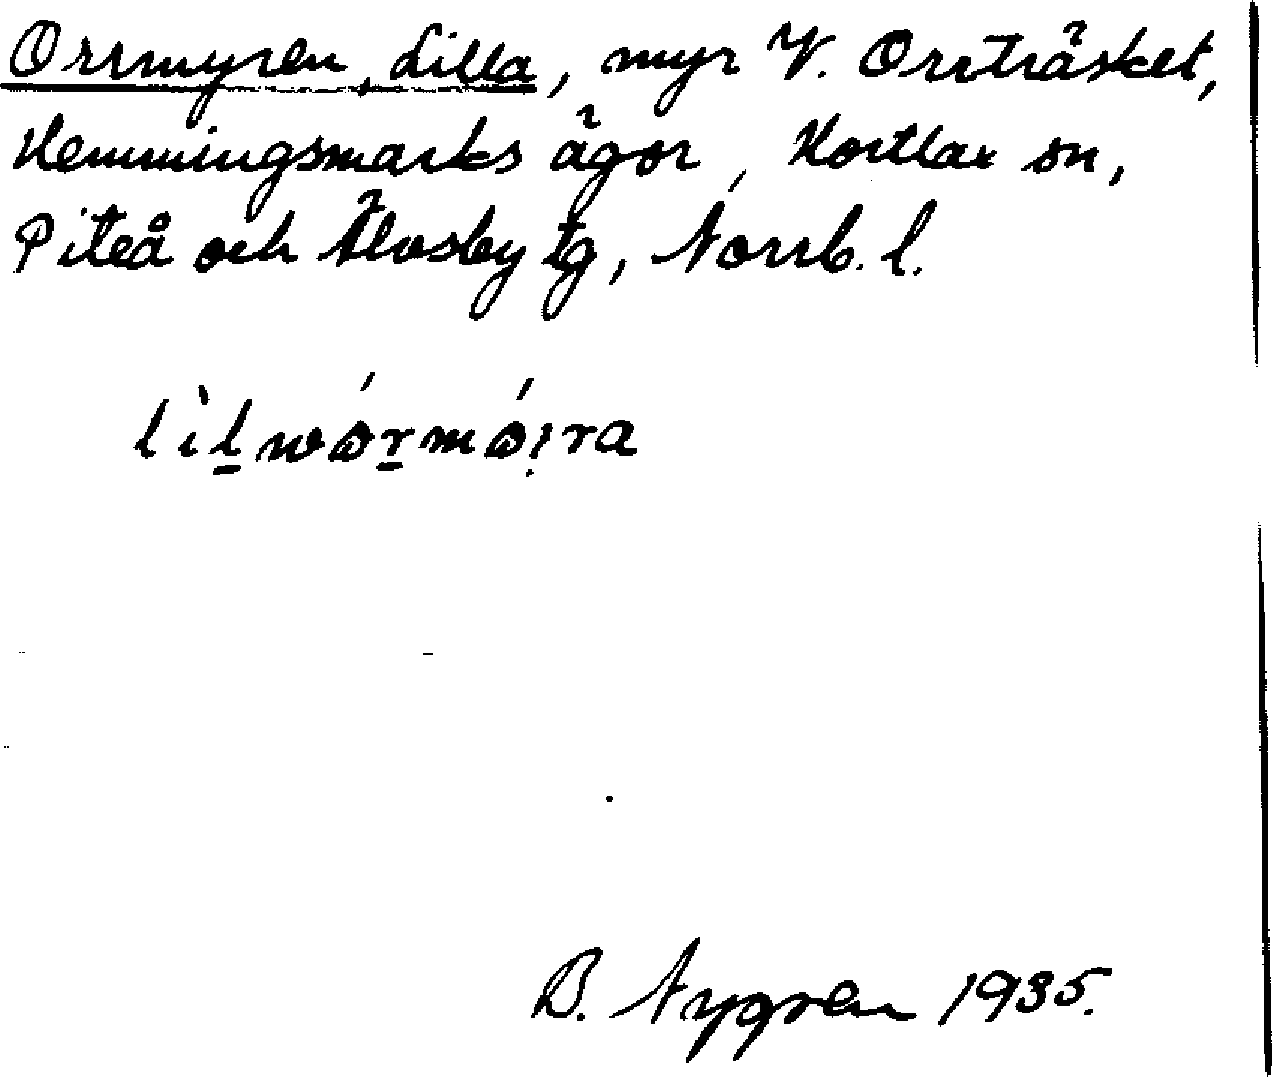 Orrmyren, Lilla, myr V. Orrträsket,
Hemmingsmarks ägor, Hortlax sn,
Piteå och Älvsby tg, Norrb. l.
lìl̠wǿr̠mǿıra
B. Nygren 1935.